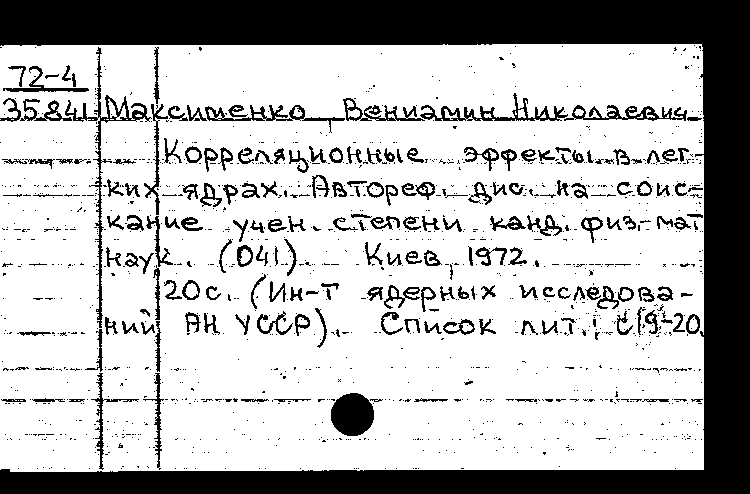 72-4
35841 Максименко Вениамин Николаевич
Корреляционные эффекты в лег-
ких ядрах. Автореф. дис. на соис-
кание учен. степени канд. физ.-мат
наук. (041). Киев, 1972.
20с. (Ин-т ядерных исследова-
ний АН УССР). Список лит.: с 19-20.